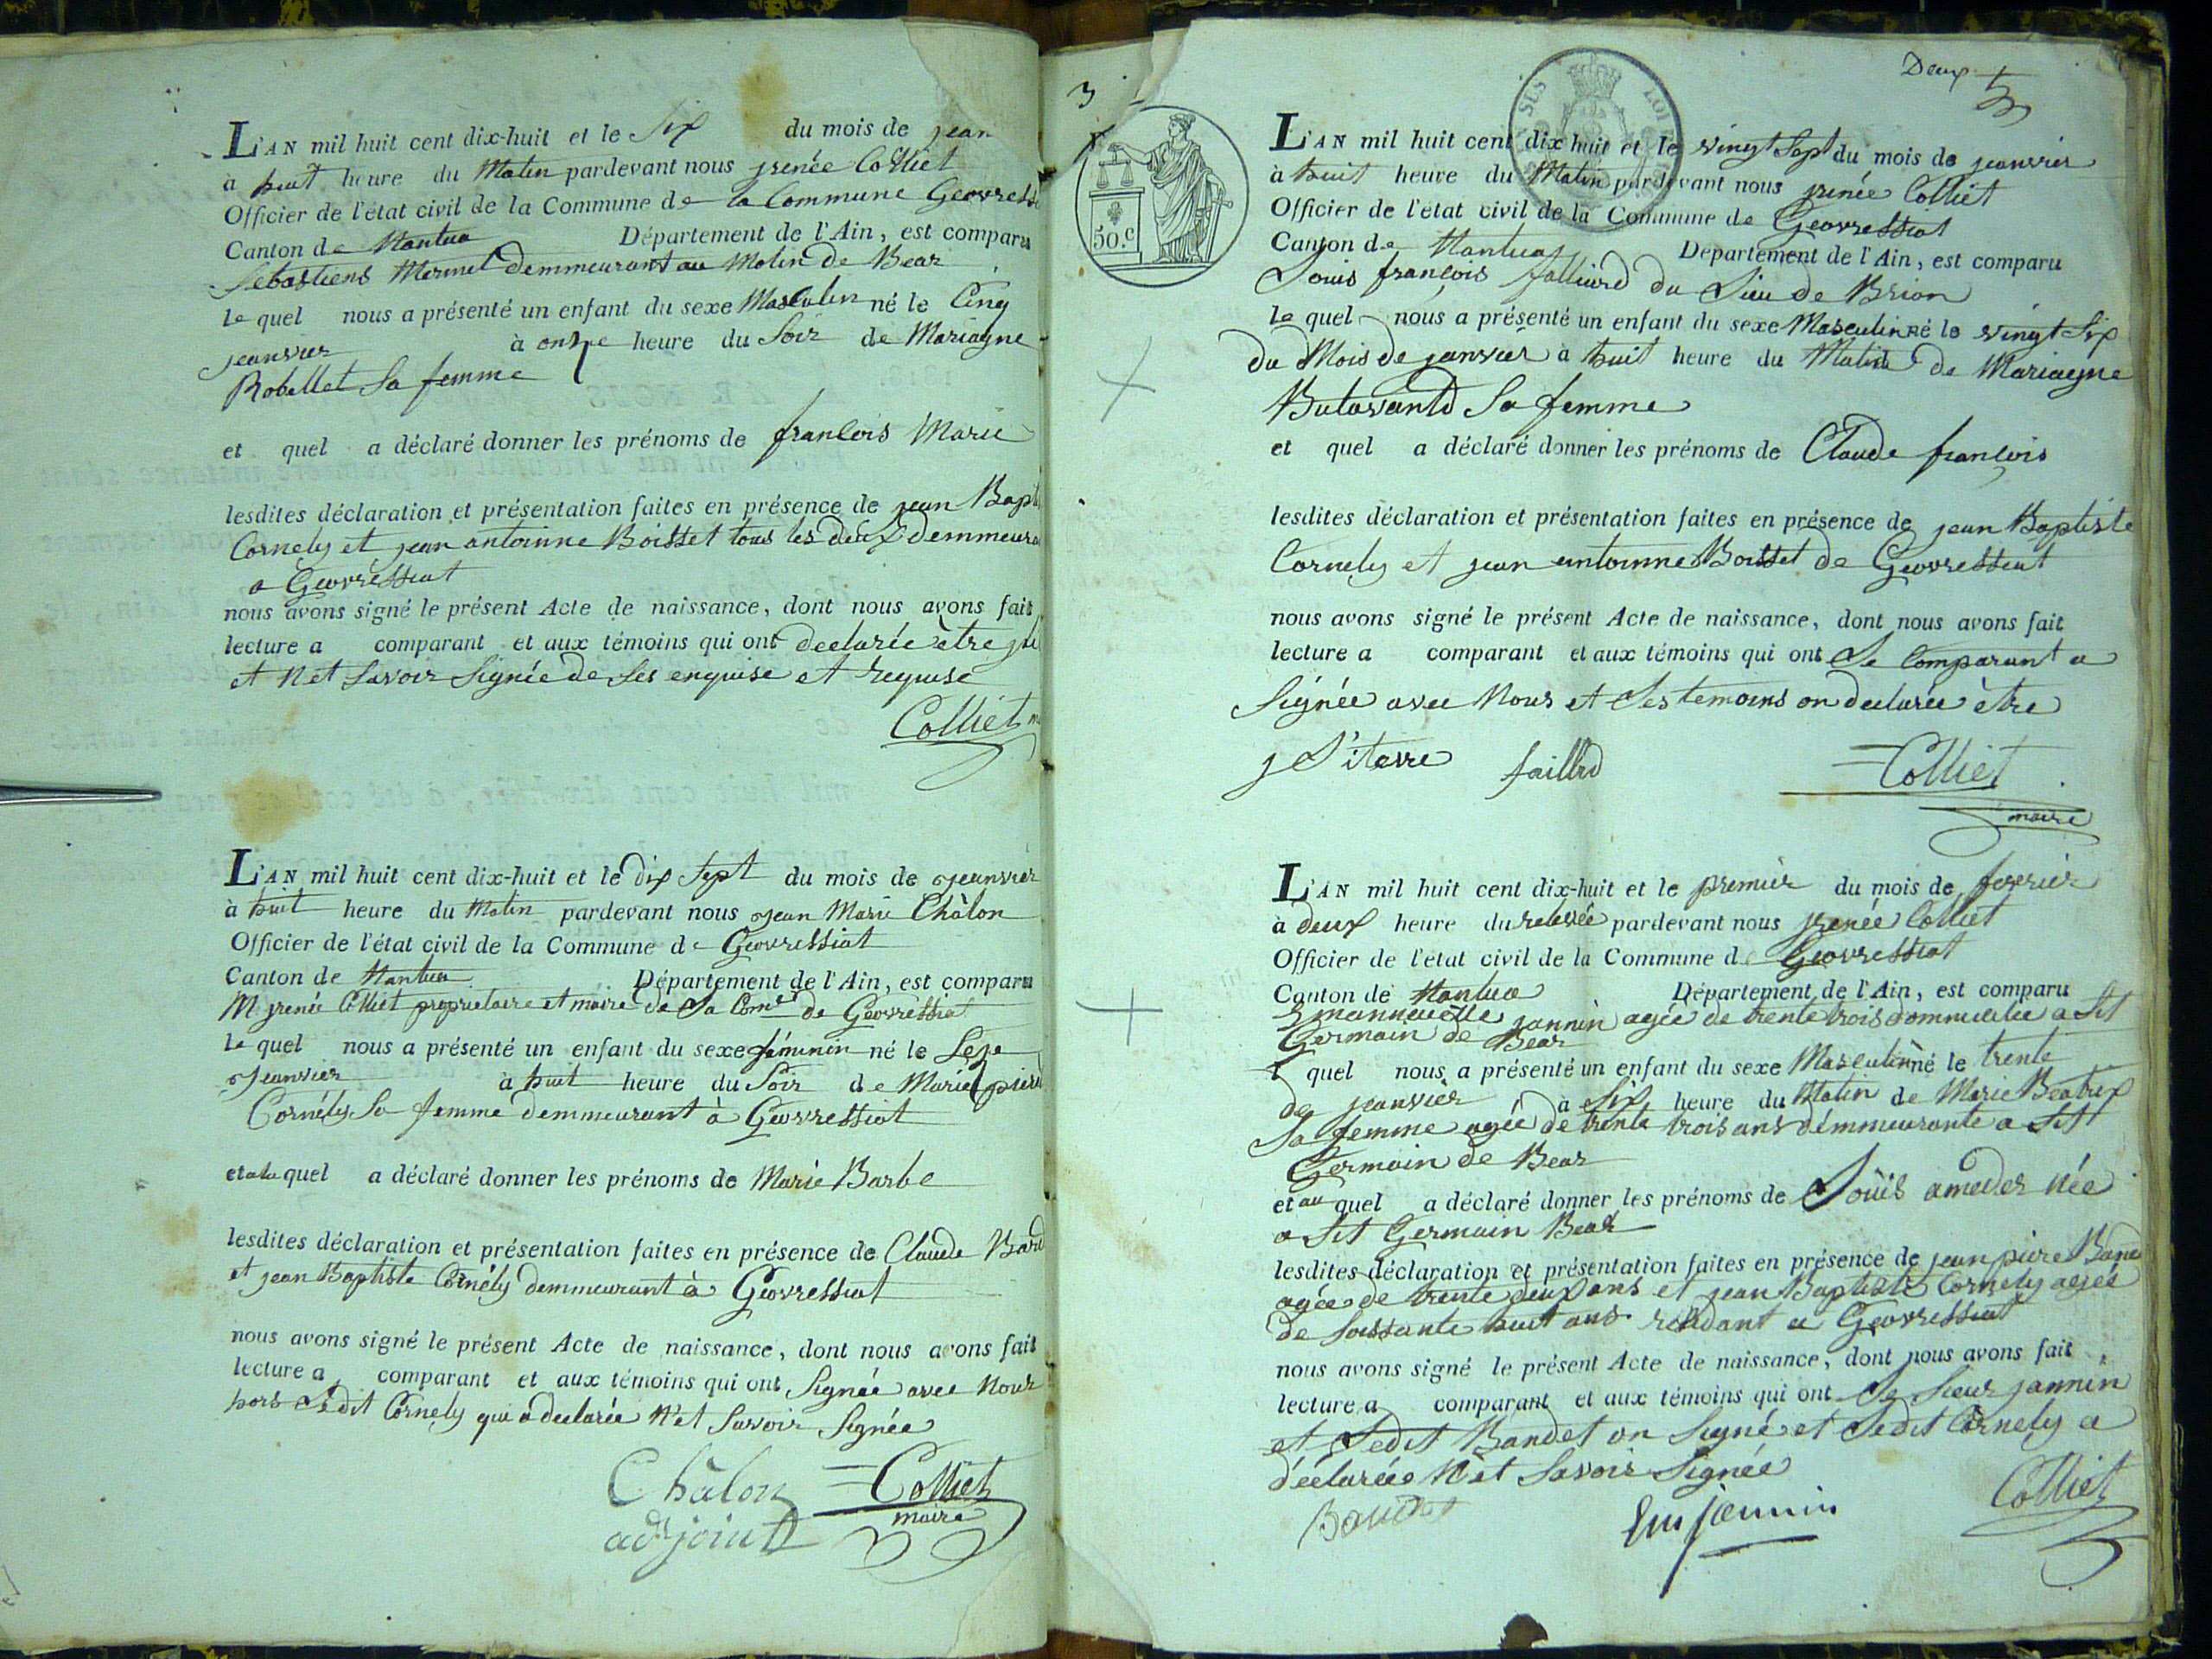 L'AN mil huit cent dix-huit et le Six du mois de jean
à huit heure du Matin pardevant nous jrenée Colliet
Officier de l'état civil de la Commune de la Commune Geovressi
Canton de Nantua Département de l'Ain, est comparu
Sebastiens Mermet demmeurant au Molin de Bear
le quel nous a présenté un enfant du sexe Masculin né le Cinq
jeanvier à onze heure du Soir de Mariagne
Robellet Sa femme
et quel a déclaré donner les prénoms de francois Marie
lesdites déclaration et présentation faites en présence de jean Bapt
Cornely et jean antoinne Boisset tous les deux demmeura
a Geovressiat
nous avons signé le présent Acte de naissance, dont nous avons fait
lecture a comparant et aux témoins qui ont declarée être
et n'et Savoir Signée de Ses enquise et requise
Colliet
L'AN mil huit cent dix-huit et le dix Sept du mois de jeanvier
à huit heure du Matin pardevant nous jean Marie Châlon
Officier de l'état civil de la Commune de Geovressiat
Canton de Nantua Département de l'Ain, est comparu
M. jrenée Colliet proprietaire et maire de La Com^ne de Géovressiat
le quel nous a présenté un enfant du sexe féminin né le Seze
jeanvier à huit heure du Soir de Marie pierr
Cornély Sa femme demmeurant à Geovressiat
et a la quel a déclaré donner les prénoms de Marie Barbe
lesdites déclaration et présentation faites en présence de Claude
et jean Baptiste Cornély demmeurant à Geovressiat
nous avons signé le présent Acte de naissance, dont nous avons fait
lecture a comparant et aux témoins qui ont Signée avec Nous
hors Ledit Cornely qui a declarée N'et Savoir Signée
Châlon Colliet
adjoint maire
Deux
3
L'AN mil huit cent dix huit et le vingt Sept du mois de jeanvier
à huit heure du Matin pardevant nous jrenée Colliet
Officier de l'état civil de la Commune de Geovressiat
50.c
Canton de Nantua Département de l'Ain, est comparu
Louis françois falliard du Lieu de Brion
le quel nous a présenté un enfant du sexe Masculin né le vingt Six
du Mois de janvier à huit heure du Matin de Mariagne
Butavand Sa femme
et quel a déclaré donner les prénoms de Claude françois
lesdites déclaration et présentation faites en présence de jean Baptiste
Cornely et jean antoinne Boisset de Geovressiat
nous avons signé le présent Acte de naissance, dont nous avons fait
lecture a comparant et aux témoins qui ont Le Comparant a
Signée avec Nous et Les temoins on declarée être
j L'itavre faillrd Colliet
maire
L'AN mil huit cent dix-huit et le premier du mois de fevrier
à deux heure du relevée pardevant nous jrenée Colliet
Officier de l'état civil de la Commune de Geovressiat
Canton de Nantua Département de l'Ain, est comparu
Emannuelle jannin agée de trente trois dommiciliée a St
Germain de Bear
quel nous a présenté un enfant du sexe Masculin né le trente
de jeanvier à Six heure du Matin de Marie Beatrix
Sa femme agée de trente trois ans démmeurante a St
Germain de Bear
et au quel a déclaré donner les prénoms de Louis amedes née
a St Germain Bear
lesdites déclaration et présentation faites en présence de jean piere
agée de trente deux ans et jean Baptiste Cornely agée
de Soissante huit ans residant a Geovressiat
nous avons signé le présent Acte de naissance, dont nous avons fait
lecture a comparant et aux témoins qui ont Le Sieur jannin
et Ledit Bandet on Signé et Ledit Cornely a
déclarée N'et Savoir Signée
Baudet Em jannin Colliet